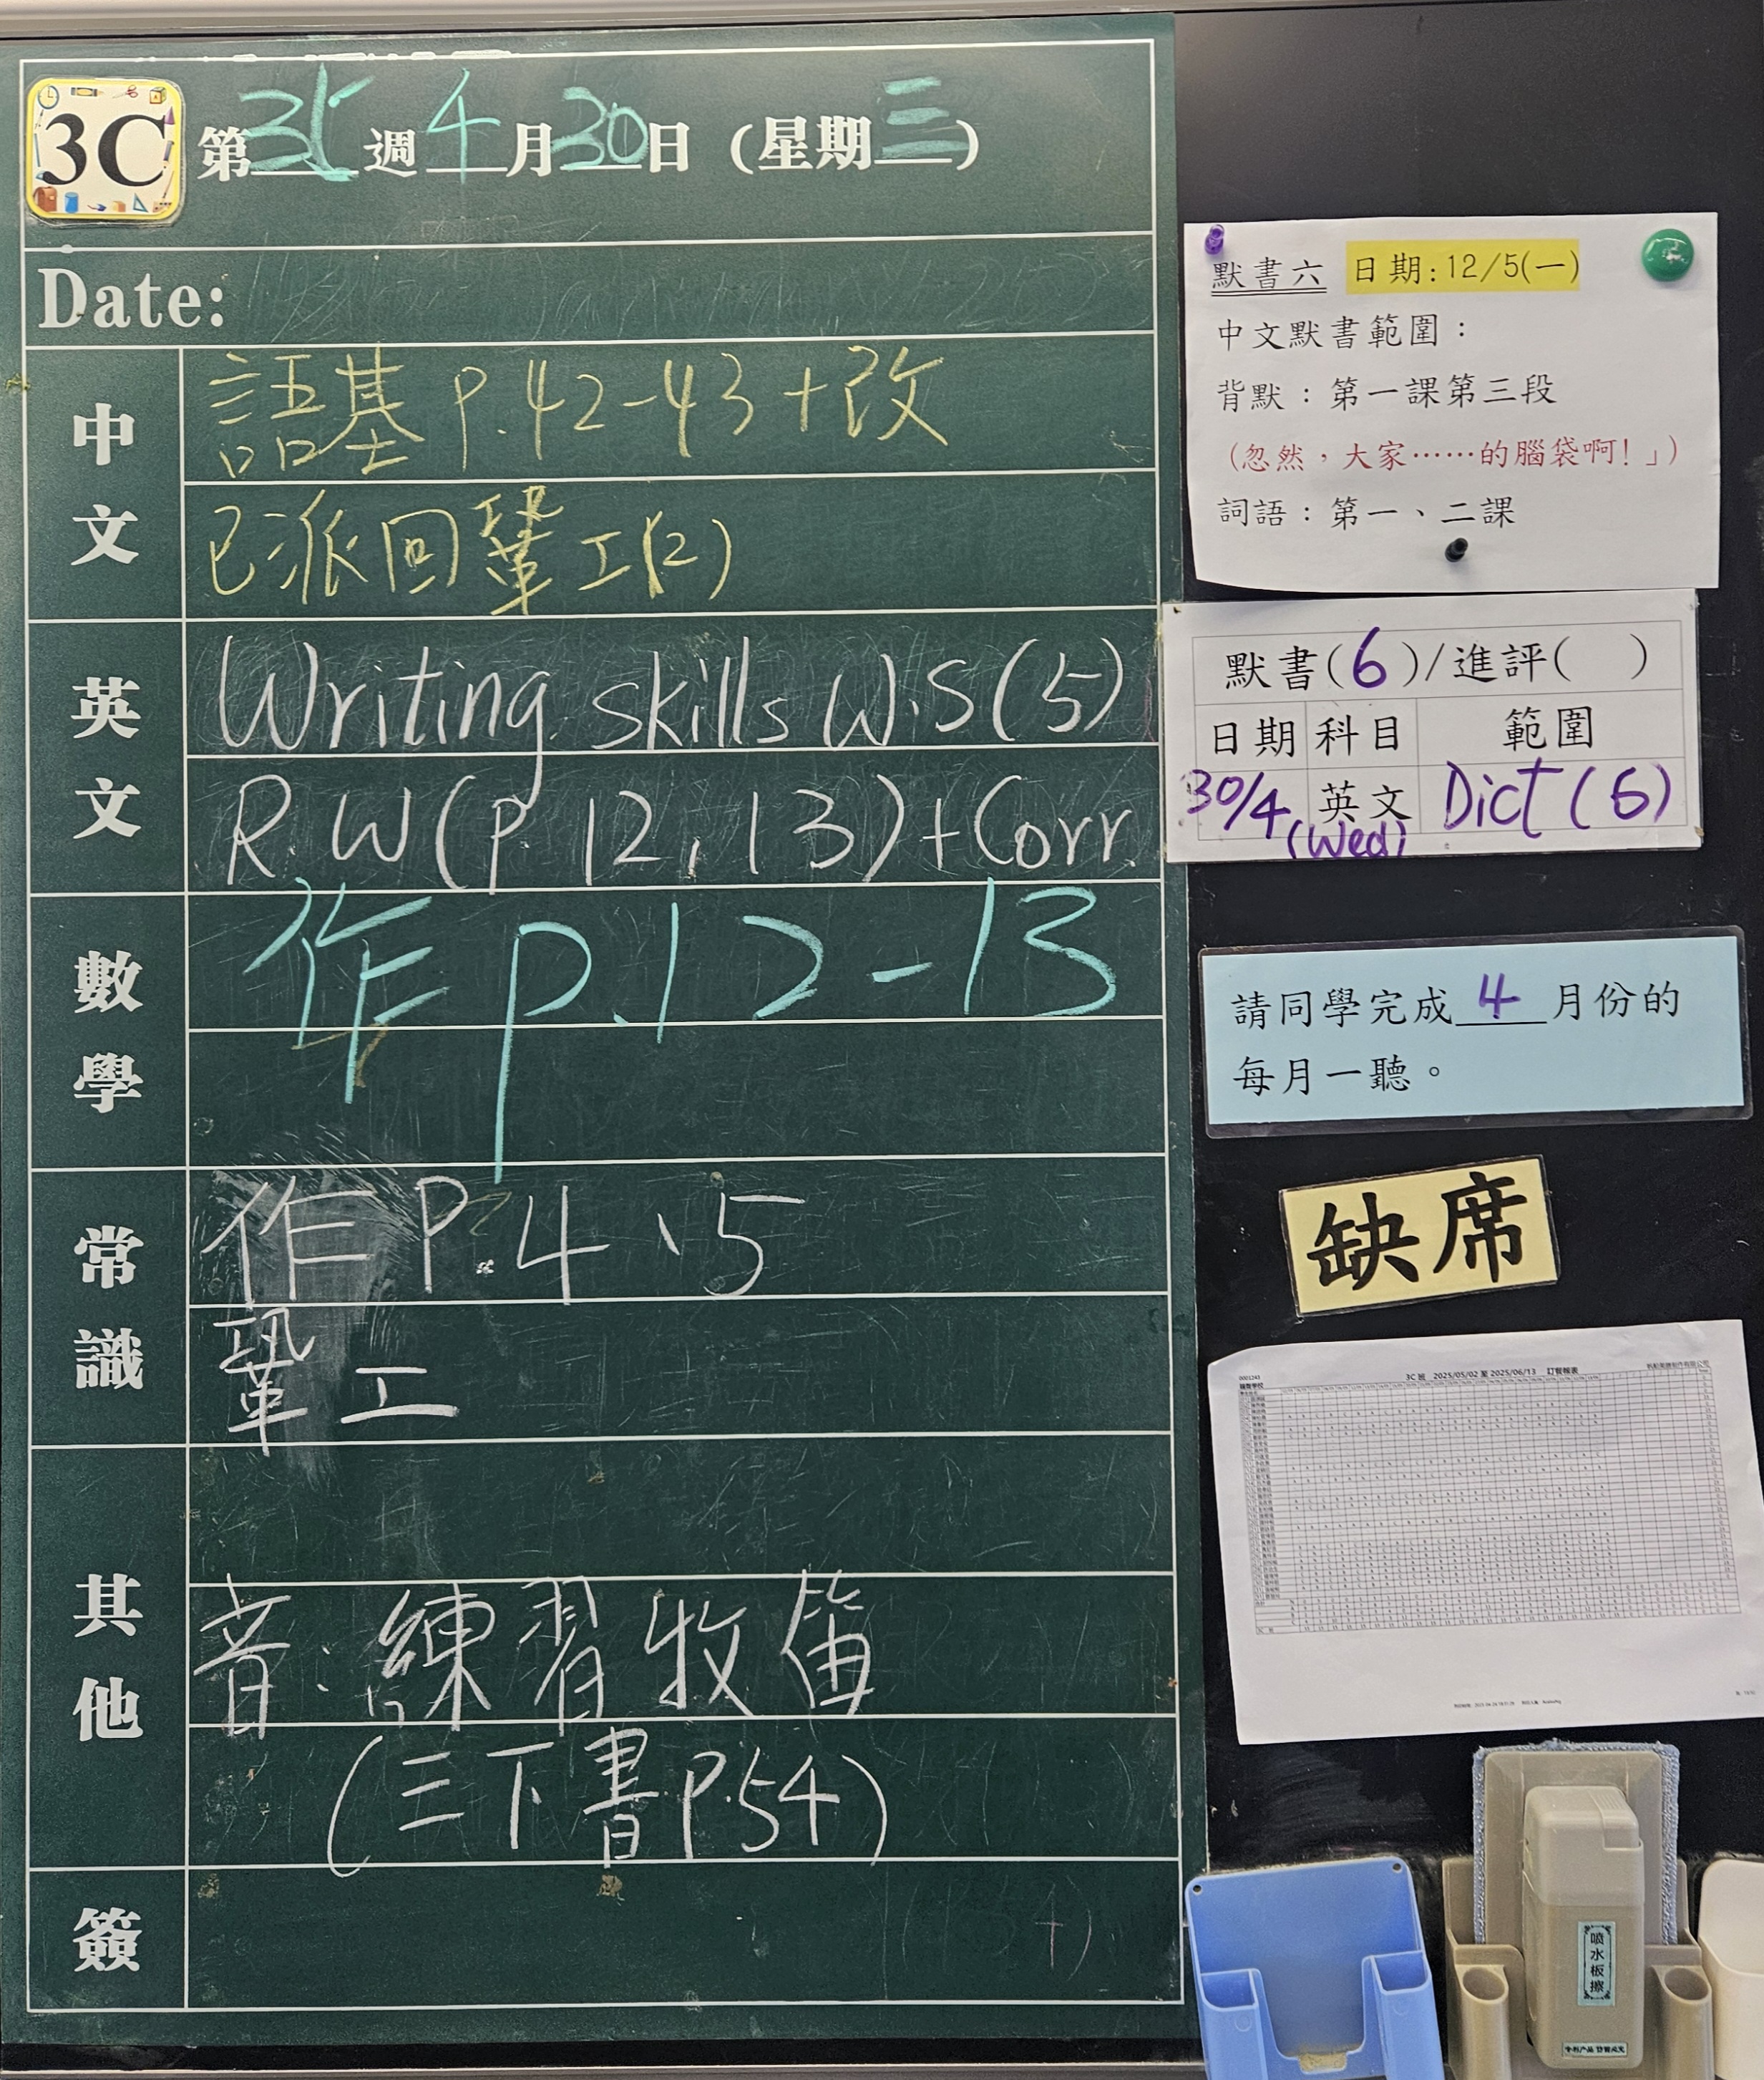 3C 第35週4月30日(星期三)
Date:
中文
語基 P.42-43+改
已派回鞏工(2)
英文
Writing skills W.S(5)
R.W(p.12,13)+Corr.
數學
作 p.12-13
常識
作 P.4、5
鞏工
其他
音:練習牧笛
(三下書P.54)
簽
默書六 日期:12/5(一)
中文默書範圍:
背默:第一課第三段
(忽然,大家……的腦袋啊!」)
詞語:第一、二課
默書(6)/進評( )
日期 科目 範圍
30/4 (Wed) 英文 Dict(6)
請同學完成 4 月份的
每月一聽。
缺席
3C 班 2025/05/02 至 2025/06/13 訂餐報表
噴水板擦